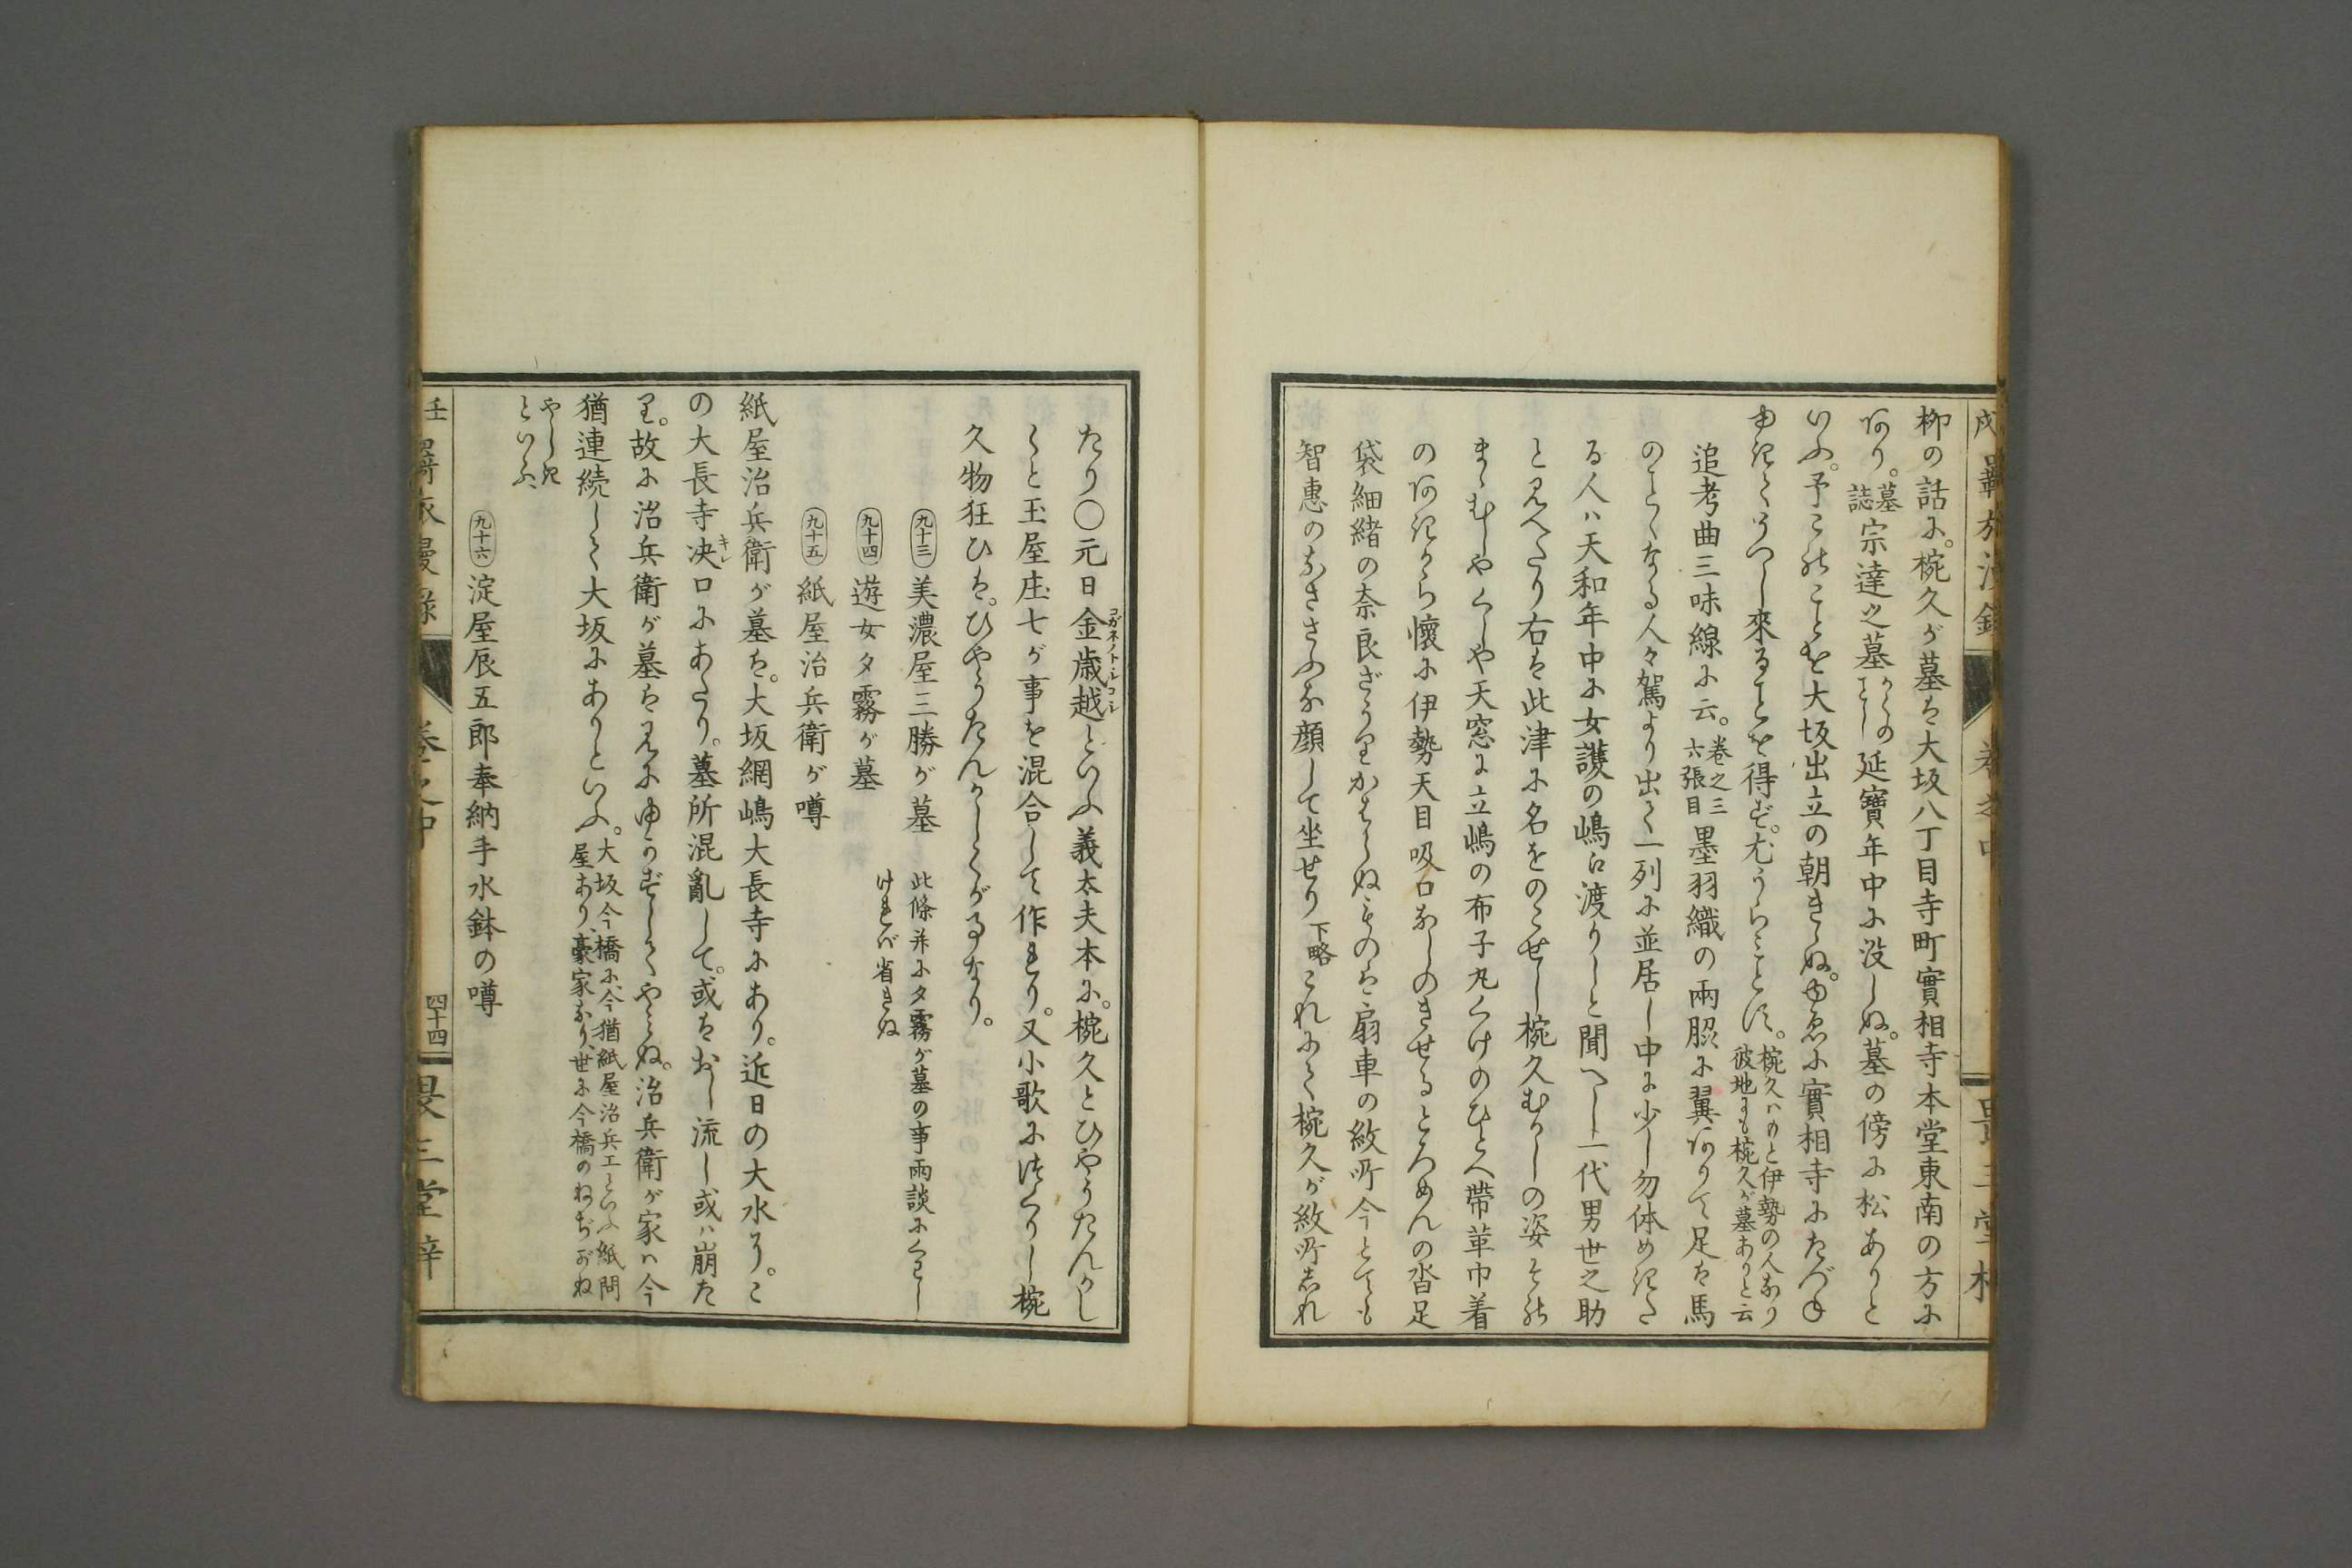 柳の話に。椀久が墓は大坂八丁目寺町實相寺本堂東南の方に
あり。墓誌宗達之墓かくのごとし延寶年中に没しぬ。墓の傍に松ありと
いふ。予このことを大坂出立の朝きゝぬ。ゆゑに實相寺にたづね
ゆきてうつし來ることを得ず。尤うらむことにす。椀久ハもと伊勢の人なり彼地にも椀久が墓ありと云
追考曲三味線に云。卷之三六張目墨羽織の兩脇に翼ありて足は馬
のごとくなる人々駕より出て一列に並居し中に少し勿体めきた
る人ハ天和年中に女護の嶋に渡りしと聞へし一代男世之助
と見へたり右は此津に名をのこせし椀久むかしの姿とて
まゝむしやくしや天窓に立嶋の布子丸くけのひとへ帶革巾着
のあきから懷に伊勢天目吸口なしのきせるところめんの沓足
袋細緒の奈良ざうりかはらぬものは扇車の紋所今とても
智惠のなささふな顔して坐せり下略これにて椀久が紋所しれ
たり○元日金歳越といふ義太夫本に。椀久とひやうたんかし
くと玉屋庄七が事を混合して作れり。又小歌につくりし椀
久物狂ひは。ひやうたんかしくが事なり。
九十三 美濃屋三勝が墓 此條并に夕霧が墓の事兩談にくはしければ省きぬ
九十四 遊女夕霧が墓
九十五 紙屋治兵衛が噂
紙屋治兵衛が墓は。大坂網嶋大長寺にあり。近日の大水より。こ
の大長寺决口にあたり。墓所混亂して。或はおし流し或ハ崩た
り。故に治兵衛が墓は見にゆかずしてやみぬ。治兵衛が家ハ今
猶連続して大坂にありといふ。大坂今橋に、今猶紙屋治兵エといふ紙問屋あり、豪家なり、世に今橋のねぢがね
やしきといふ、
九十六 淀屋辰五郎奉納手水鉢の噂
卷之中
四十四